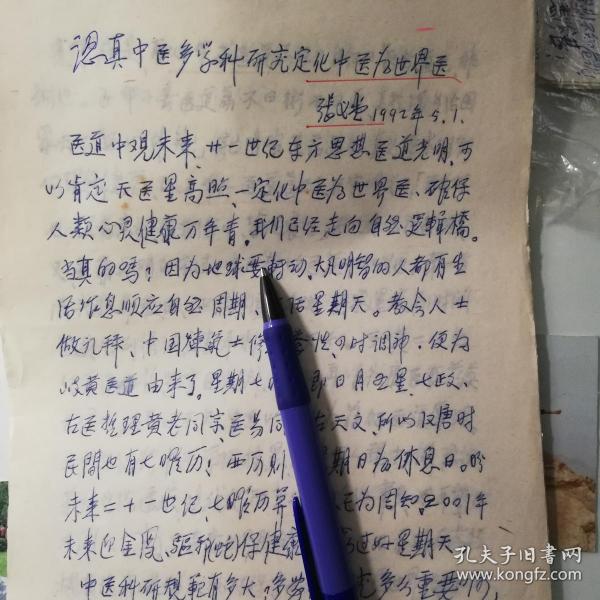 认真中医多学科研究定化中医为世界医
1992年5.1.
医道中观未来、廿一世纪东方思想医道光明,可
以肯定天医星高照、一定化中医为世界医、确保
人类心灵健康万年青。我们已经走向自然逻輯橋。
当真的吗?因为地球要转动、大凡明智的人都有生
活作息顺应自然周期、 活星期天。教会人士
做礼拜、中国 士修 性、 时调神、便为
岐黄医道由来了。星期七 即日月五星、七政、
古医哲理黄老同宗、医易同 在天文、所以汉唐时
民間也有七曜历!西历则 期日为休息日。盼
未来二十一世纪、七曜历算 为周知、2001年
未来迎金 、驱 保健康 过好星期天
中医科研规范有多大?多学 多么重要
孔夫子旧书网
www.kongfz.com